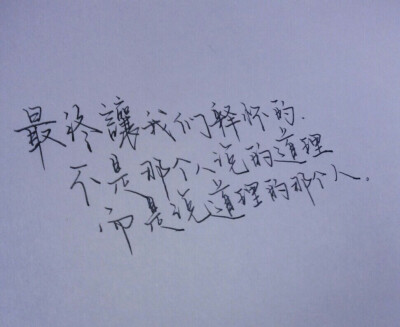 最终讓我们释怀的.
不是那个人说的道理
而是说道理的那个人.